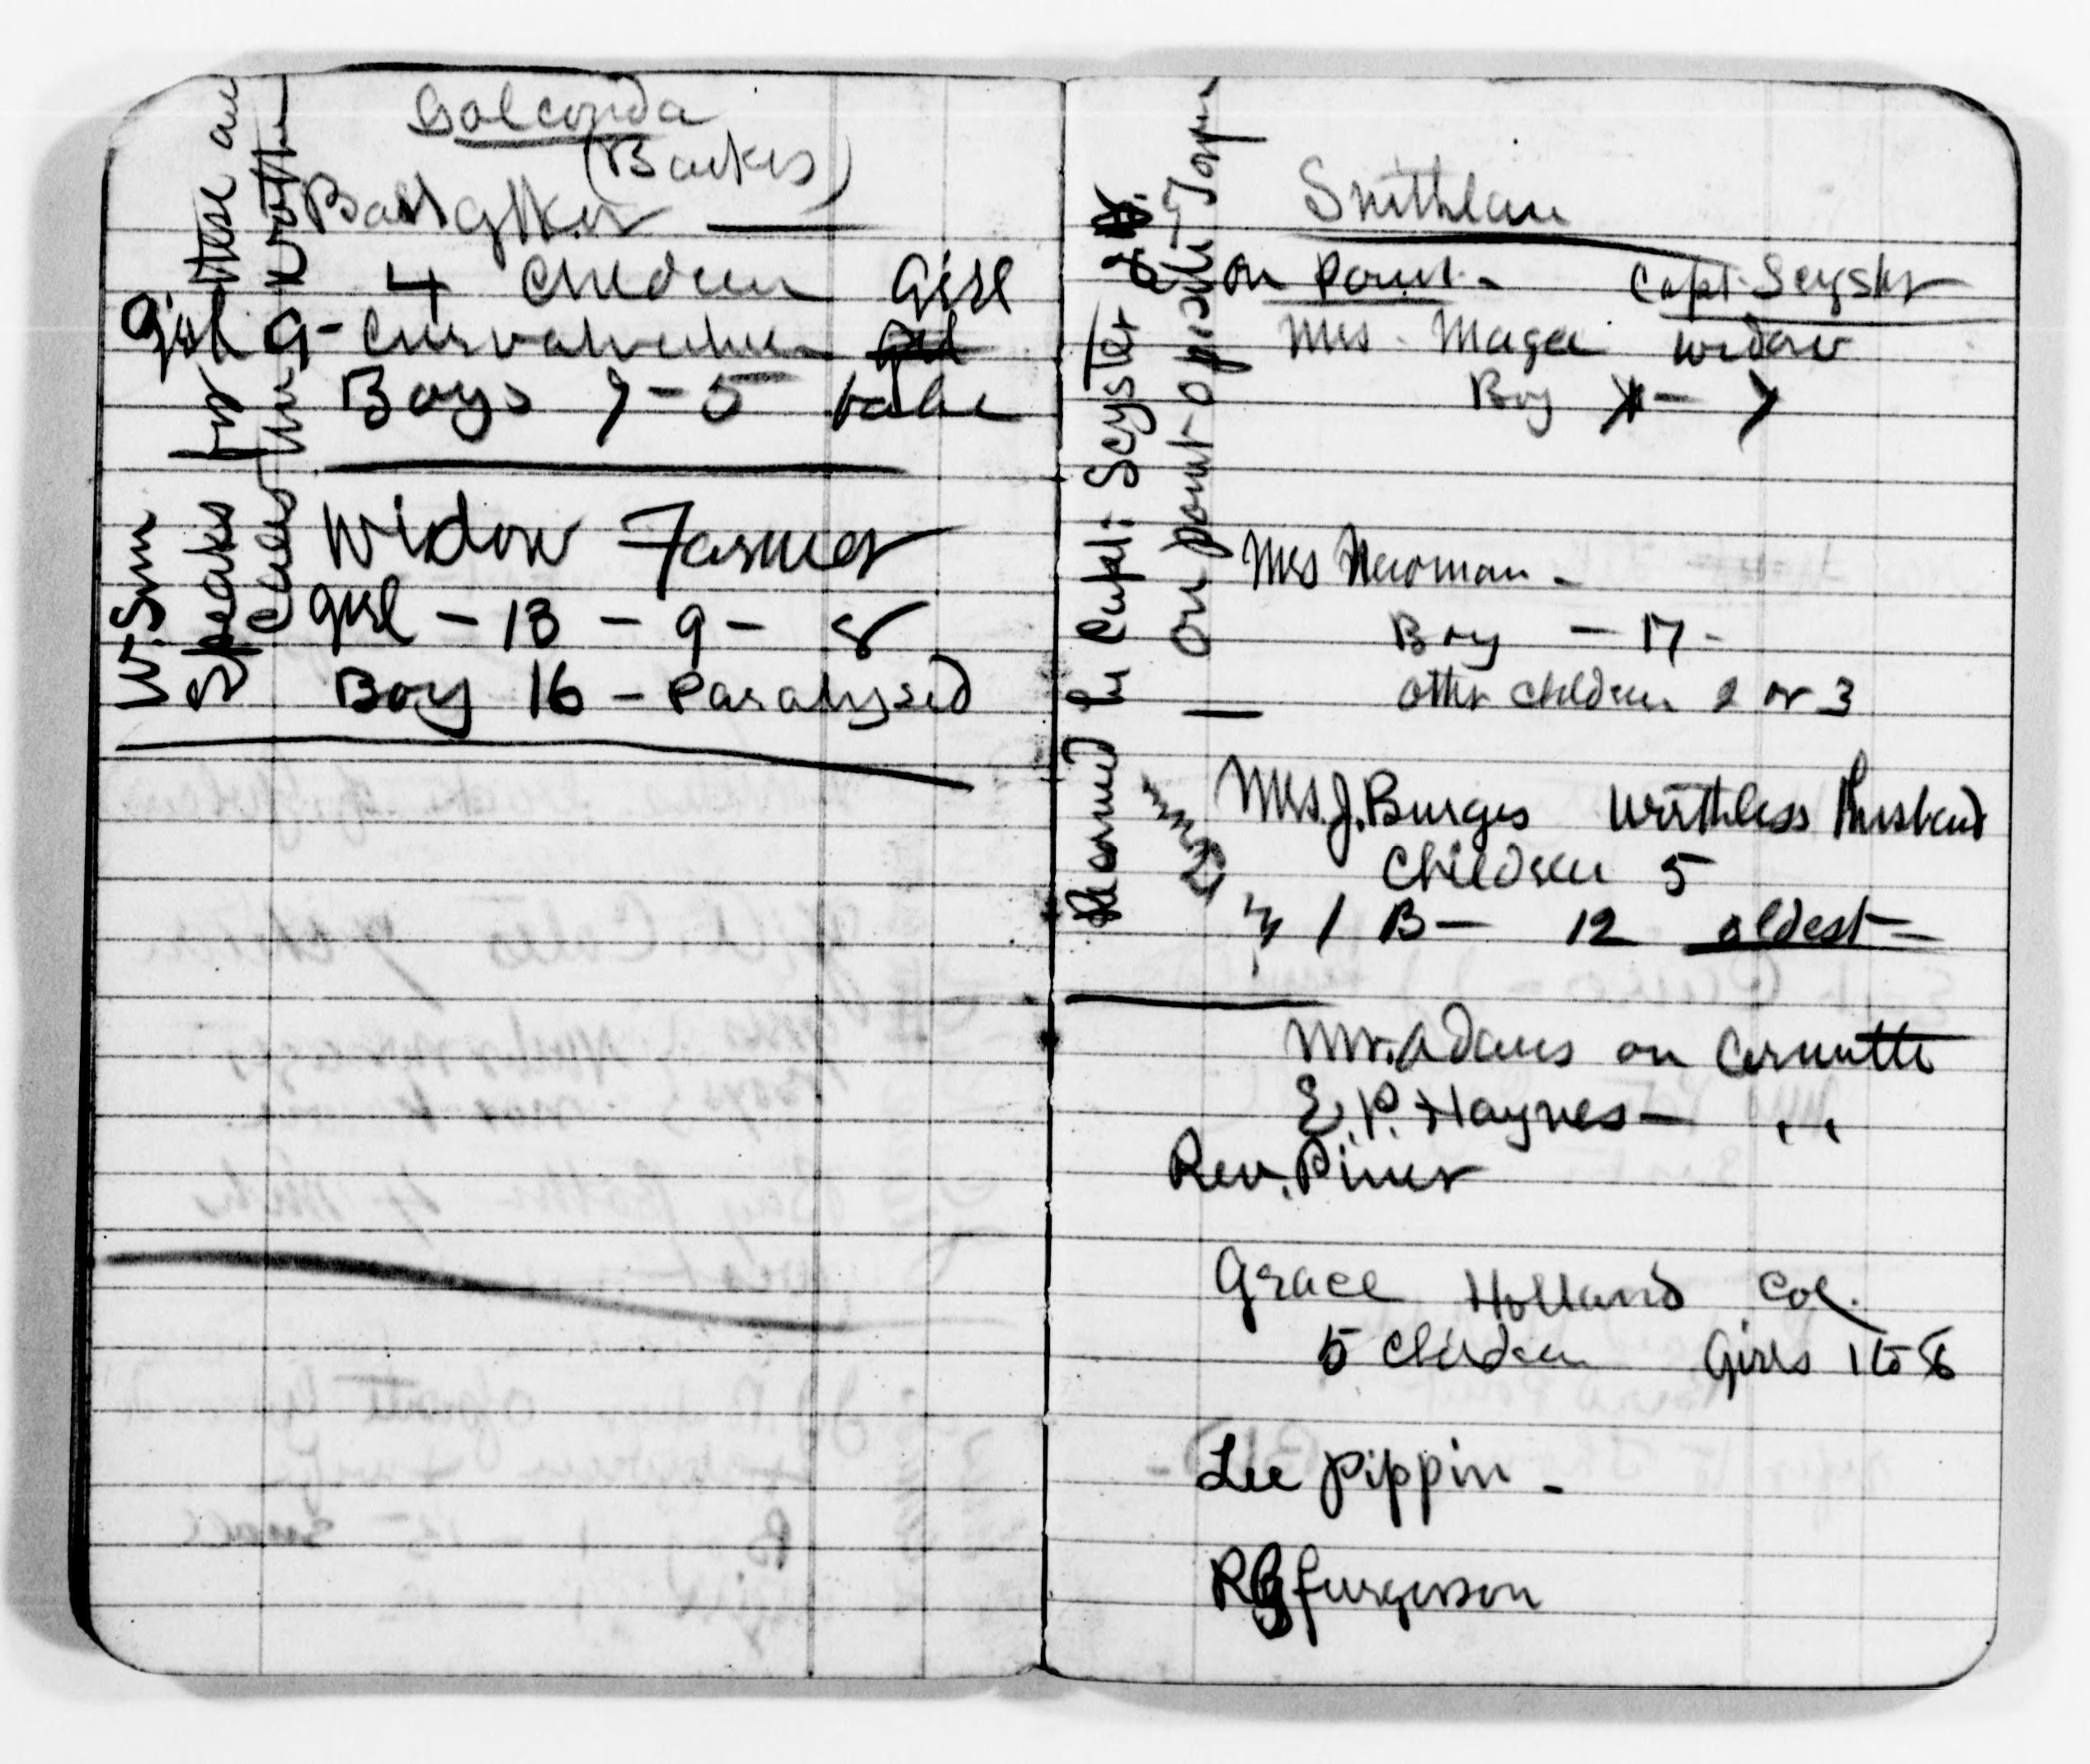 Golconda
(Backes)
4 Children Girl
Girl 9 -
Boys 7 - 5 babe
Widow Farmer
girl - 13 - 9 - 8
Boy 16 - Paralysed
W. Sim
speaks for these as
cases the worthie
Smithlan
On Point - Capt. Seyster
Mrs. Magee widow
Boy - 7
Mrs Newoman -
Boy - 17 -
other children 2 or 3
Mrs. J. Burges Worthless Husband
Children 5
1 B - 12 oldest -
Mr. Adams on Committe
E. P. Haynes - "
Rev. Piner
Grace Holland Col.
5 Children Girls 1 to 8
Lee Pippin -
R G furgerson
by Capt. Seyster
On point opposite